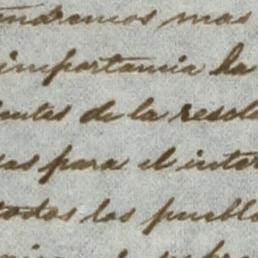 endremos mas
importancia la
entes de la resol
sas para el inter
todos los pueblo